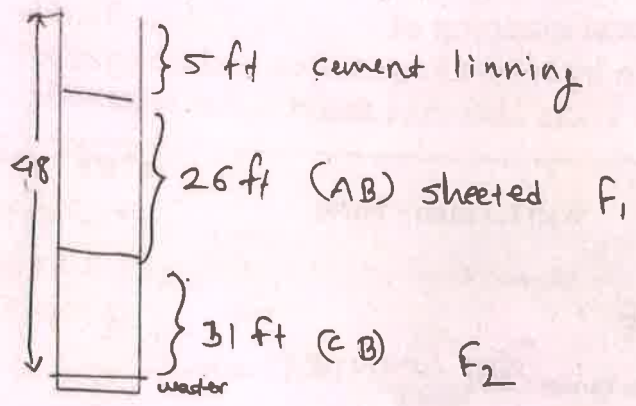 5 ft cement linning
48
26 ft (AB) sheeted F1
31 ft (CB) F2
waster